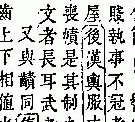 賤執事不冠者
屋後漢輿服
喪幘是其制
文者長耳武
又與同
齒上下相值